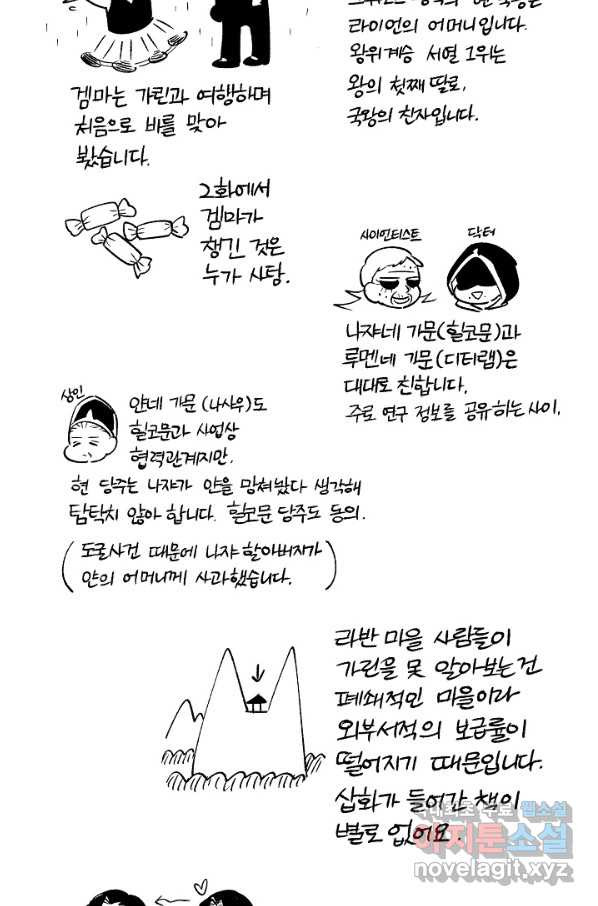 라이언의 어머니입니다.
왕위계승 서열 1위는
왕의 첫째 딸로,
국왕의 친자입니다.
겜마는 가린과 여행하며
처음으로 비를 맞아
봤습니다.
2화에서
겜마가
챙긴 것은
누가 사탕.
사이언티스트
닥터
나쟈네 가문(힐코문)과
루멘네 가문(디터랩)은
대대로 친합니다.
주로 연구 정보를 공유하는 사이.
상인
얀네 가문(나시우)도
힐코문과 사업상
협력관계지만,
현 당주는 나쟈가 얀을 망쳐놨다 생각해
탐탁치 않아 합니다. 힐코문 당주도 동의.
(도굴사건 때문에 나쟈 할아버지가
얀의 어머니께 사과했습니다.)
라반 마을 사람들이
가린을 못 알아보는 건
폐쇄적인 마을이라
외부서적의 보급률이
떨어지기 때문입니다.
삽화가 들어간 책이
별로 없어요.
웹소설
아지툰소설
novelagit.xyz